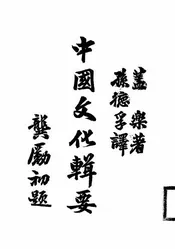 蓋樂著
孫德孚譯
中國文化輯要
龔勵初題